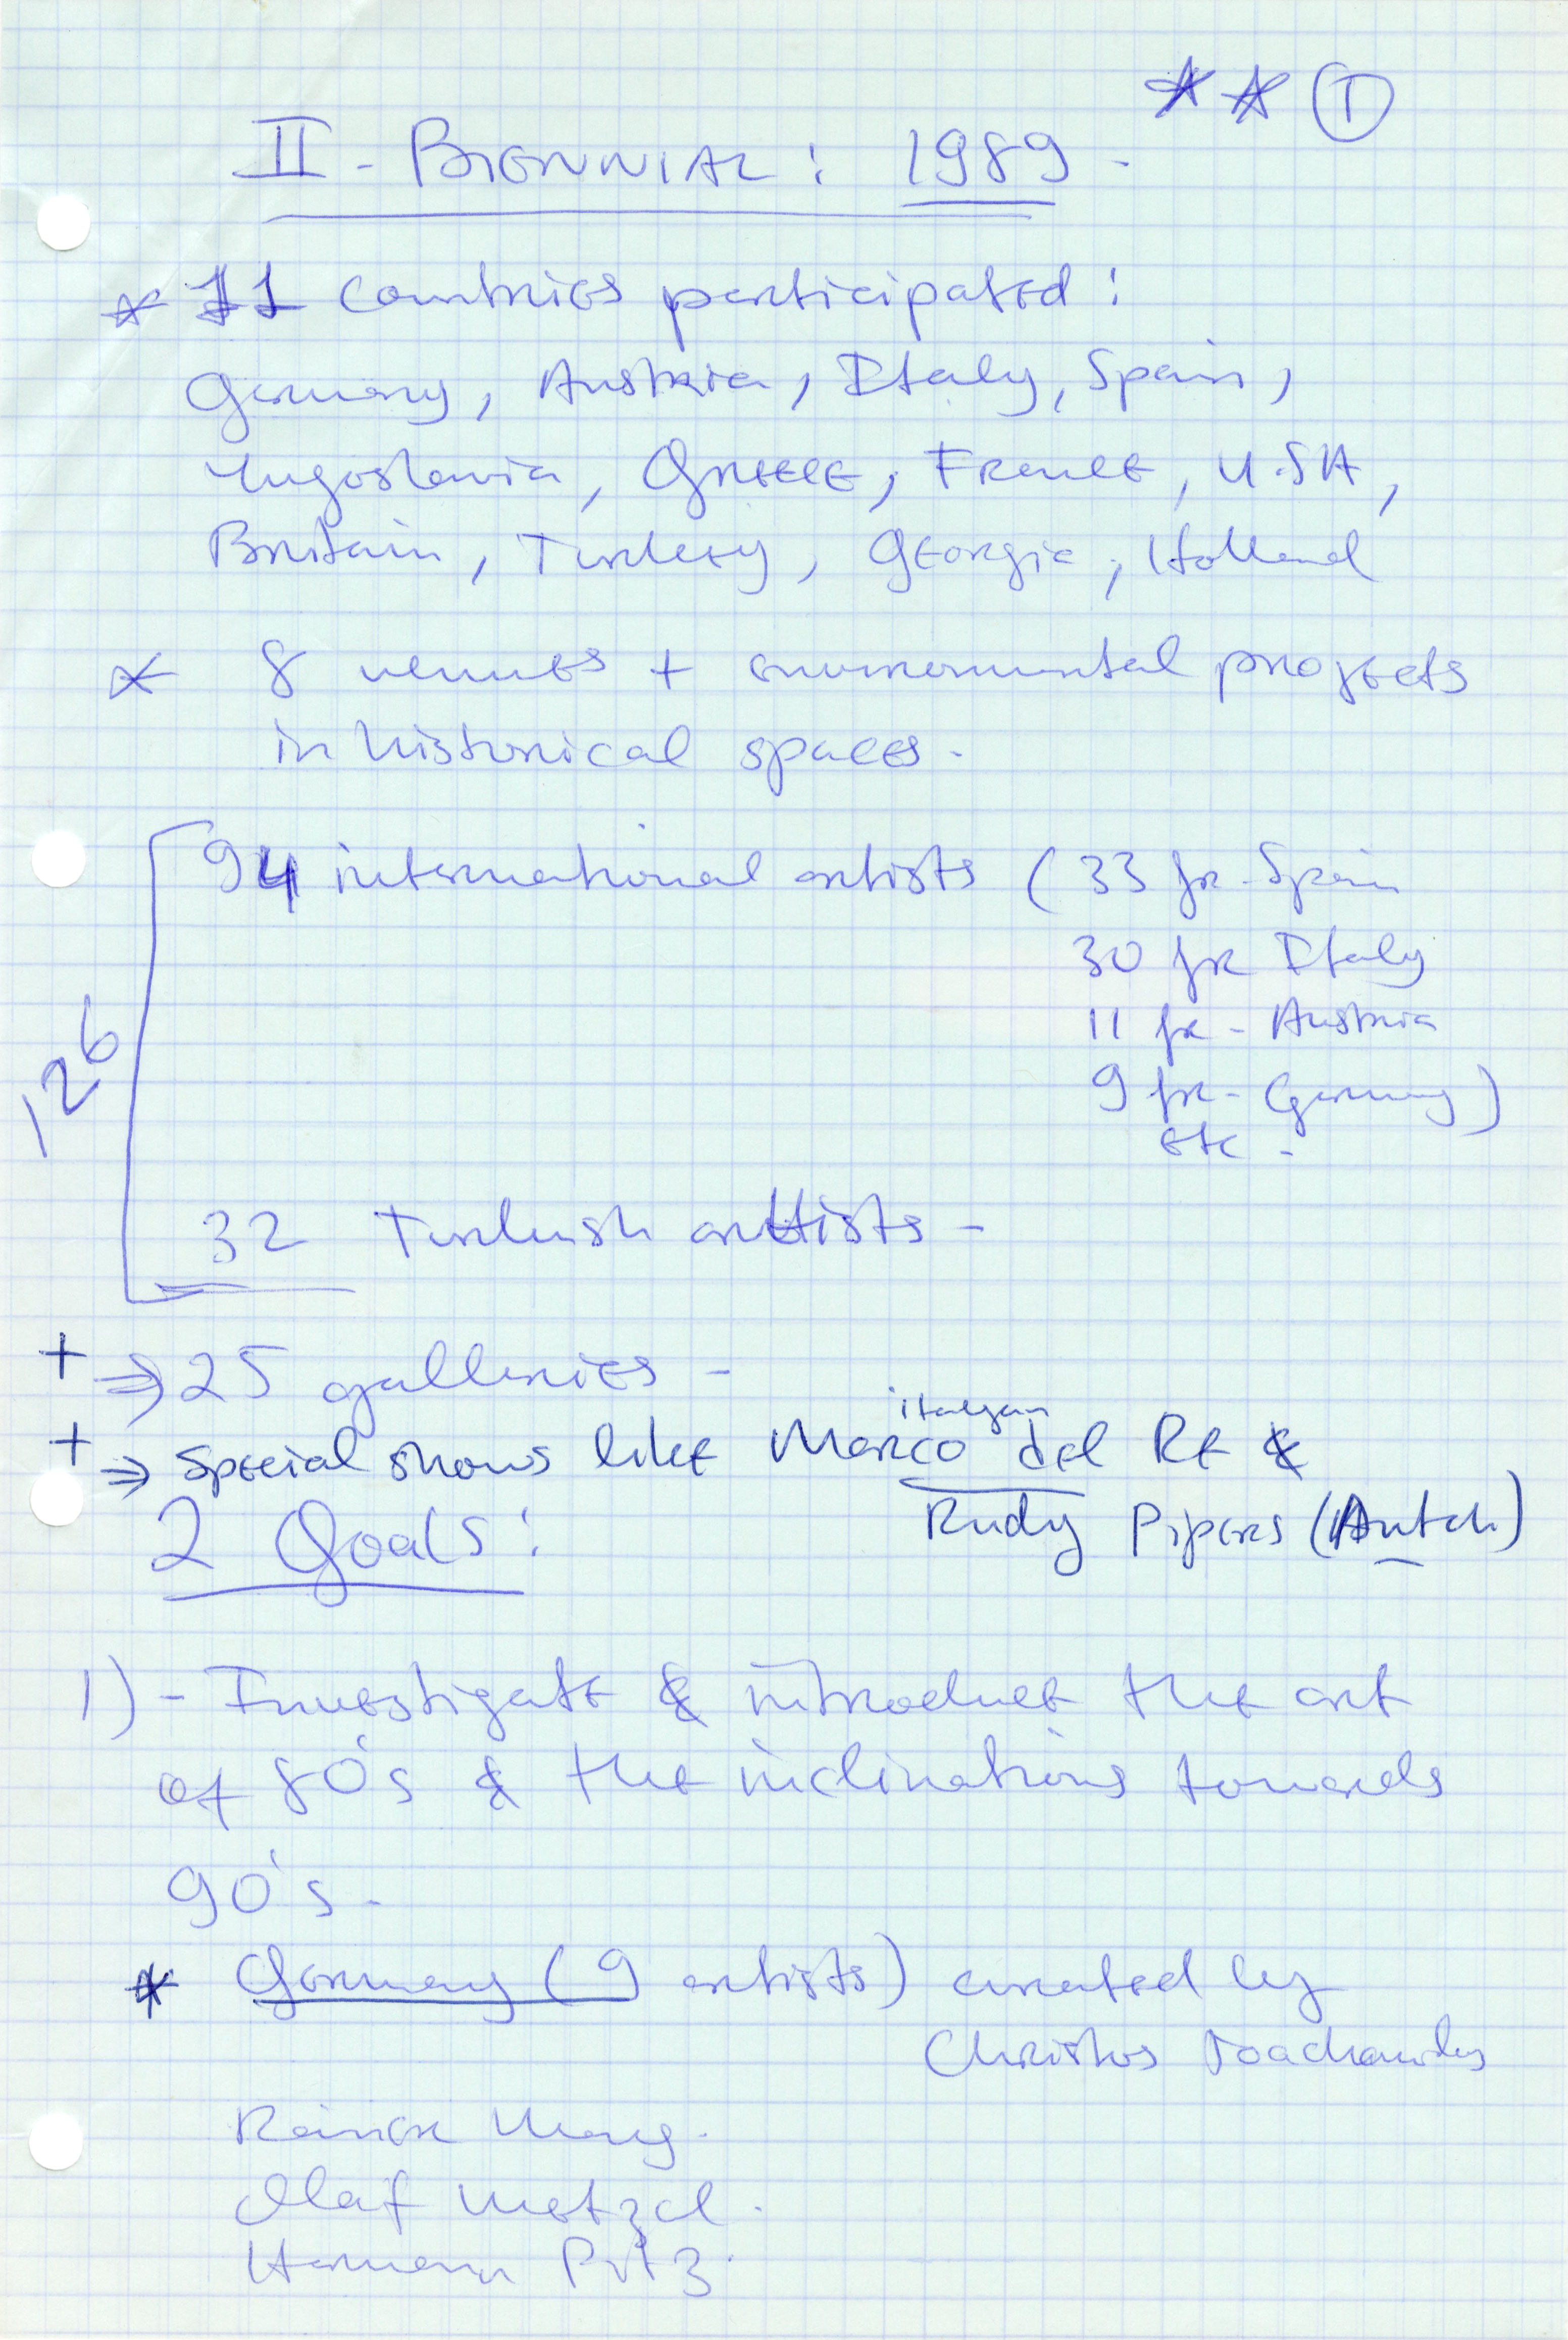 ★ ★ ①
II - BIENNIAL : 1989 -
* 11 countries participated :
Germany, Austria, Italy, Spain,
Yugoslavia, Greece, France, U.SA,
Britain, Turkey, Georgia, Holland
* 8 venues + environmental projects
in historical spaces -
94 international artists ( 33 fr - Spain
30 fr Italy
11 fr - Austria
9 fr - Germany )
etc -
126
32 Turkish artists -
+ ⇒ 25 galleries -
italyan
+ ⇒ special shows like Marco del Re &
Rudy Pijpers (Dutch)
2 Goals :
1) - Investigate & introduce the art
of 80's & the inclinations towards
90's -
* Germany ( 9 artists ) curated by
Christos
Rainer
Olaf Metzel -
Hermann Pitz -